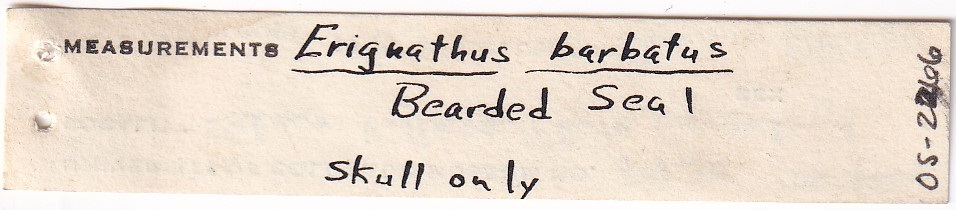 MEASUREMENTS Erignathus barbatus
Bearded Seal
Skull only